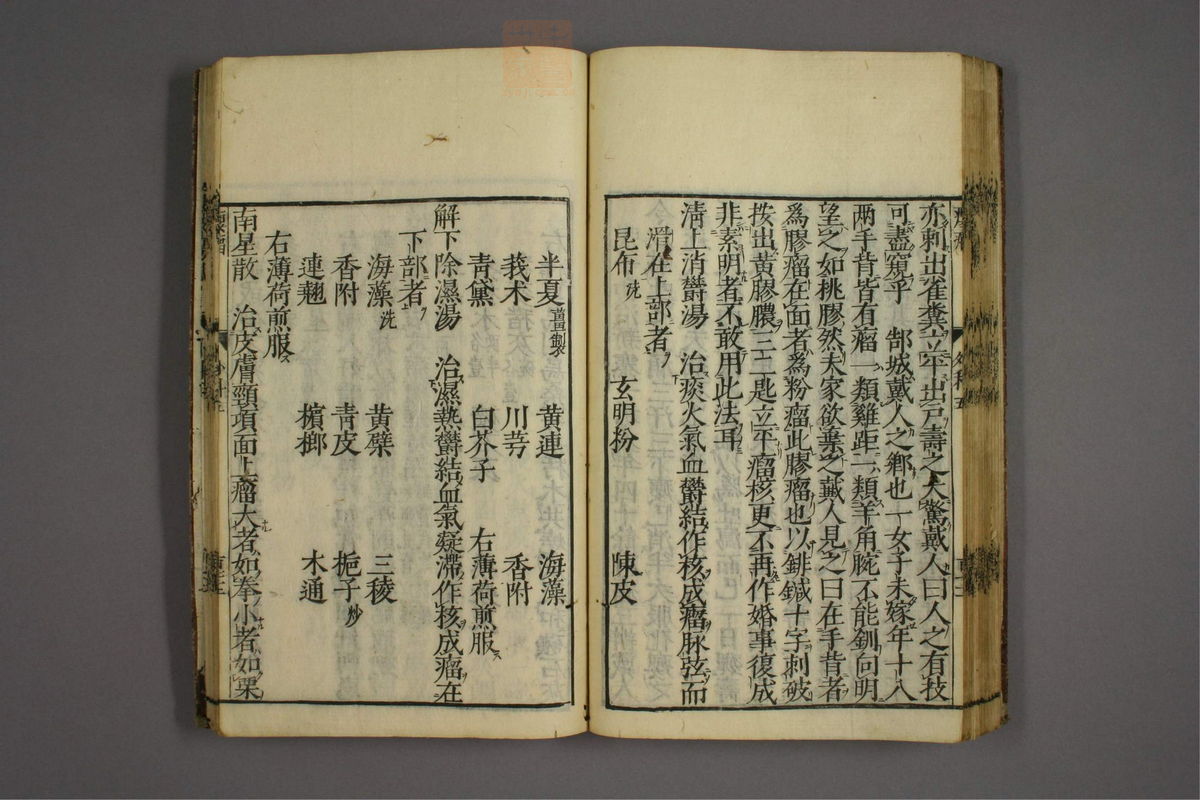 亦刺出雀糞立平出戸壽之大驚戴人曰人之有技
可盡窺乎　郜城戴人之鄕也一女子未嫁年十八
两手背皆有瘤一類雞距一類羊角腕不能釧向明
望之如桃膠然夫家欲棄之戴人見之曰在手背者
爲膠瘤在面者爲粉瘤此膠瘤也以鈹鍼十字刺破
按出黃膠膿三二匙立平瘤核更不再作婚事復成
非素明者不敢用此法耳
淸上消欝湯　治痰火氣血欝結作核成瘤脉弦而
滑在上部者
昆布洗　玄明粉　陳皮
半夏薑製　黃連　海藻
莪术　川芎　香附
靑黛　白芥子　右薄荷煎服
解下除濕湯　治濕熱欝結血氣凝滯作核成瘤在
下部者
海藻洗　黃檗　三稜
香附　靑皮　梔子炒
連翹　檳榔　木通
右薄荷煎服
南星散　治皮膚頸項面上瘤大者如拳小者如栗